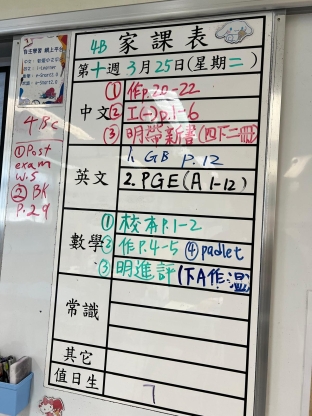 4B 家課表
第十週3月25日(星期二)
中文
① 作p.20-22
② 工(一)p.1-6
③ 明帶新書(四下二冊)
英文
1. GB P.12
2. PGE (A 1-12)
數學
① 校本p.1-2
② 作p.4-5 ④ padlet
③ 明進評(下A作溫
常識
其它
值日生
7
4BC
① Post
exam
W.S
② BK
P.29